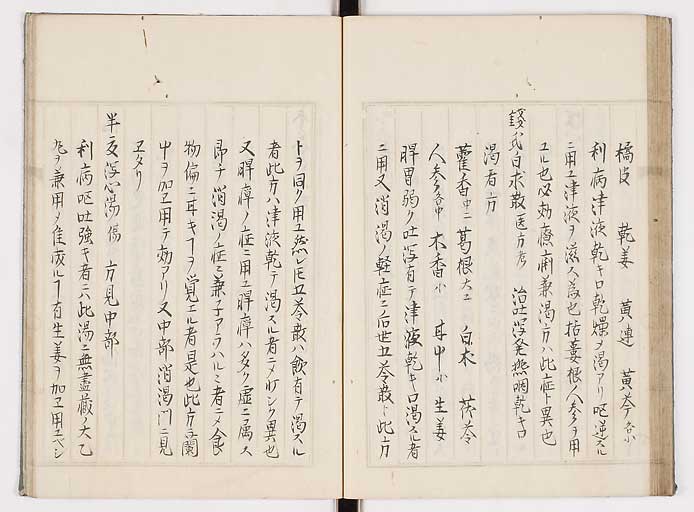 橘皮 乾姜 黄連 黄芩各小
利病津液乾キ口乾燥メ渇アリ嘔逆スル
ニ用ユ津液ヲ滋ス為也括蔞根人参ヲ用
ユル也必効療痢兼渇方ハ此症ト異也
錢氏白求散医方考 治吐瀉発熱咽乾キ口
渇者方
藿香中ニ 葛根大ニ 白木 茯苓
人参各中 木香小 甘中小 生姜
脾胃弱ク吐瀉有テ津液乾キ口渇スル者
ニ用又消渇ノ軽症ニ后世五苓散ト此方
トヲ同ク用ユ然レ𪜈五苓散ハ飲有テ渇スル
者此方ハ津液乾テ渇スル者ニメ
又脾癉ノ症ニ用ユ脾癉ハ多ク虚ニ属ス
即チ消渇ノ症ニ兼子アラハルヽ者ニメ食
物偏ニ甘キヿヲ覚エル者是也此方ニ蘭
中ヲ加ヱ用テ効アリ又中部消渇門ニ見
ヱタリ
半夏瀉心湯傷 方見中部
利病嘔吐強キ者ニハ此湯ニ無盡蔵ノ大乙
丸ヲ兼用メ佳